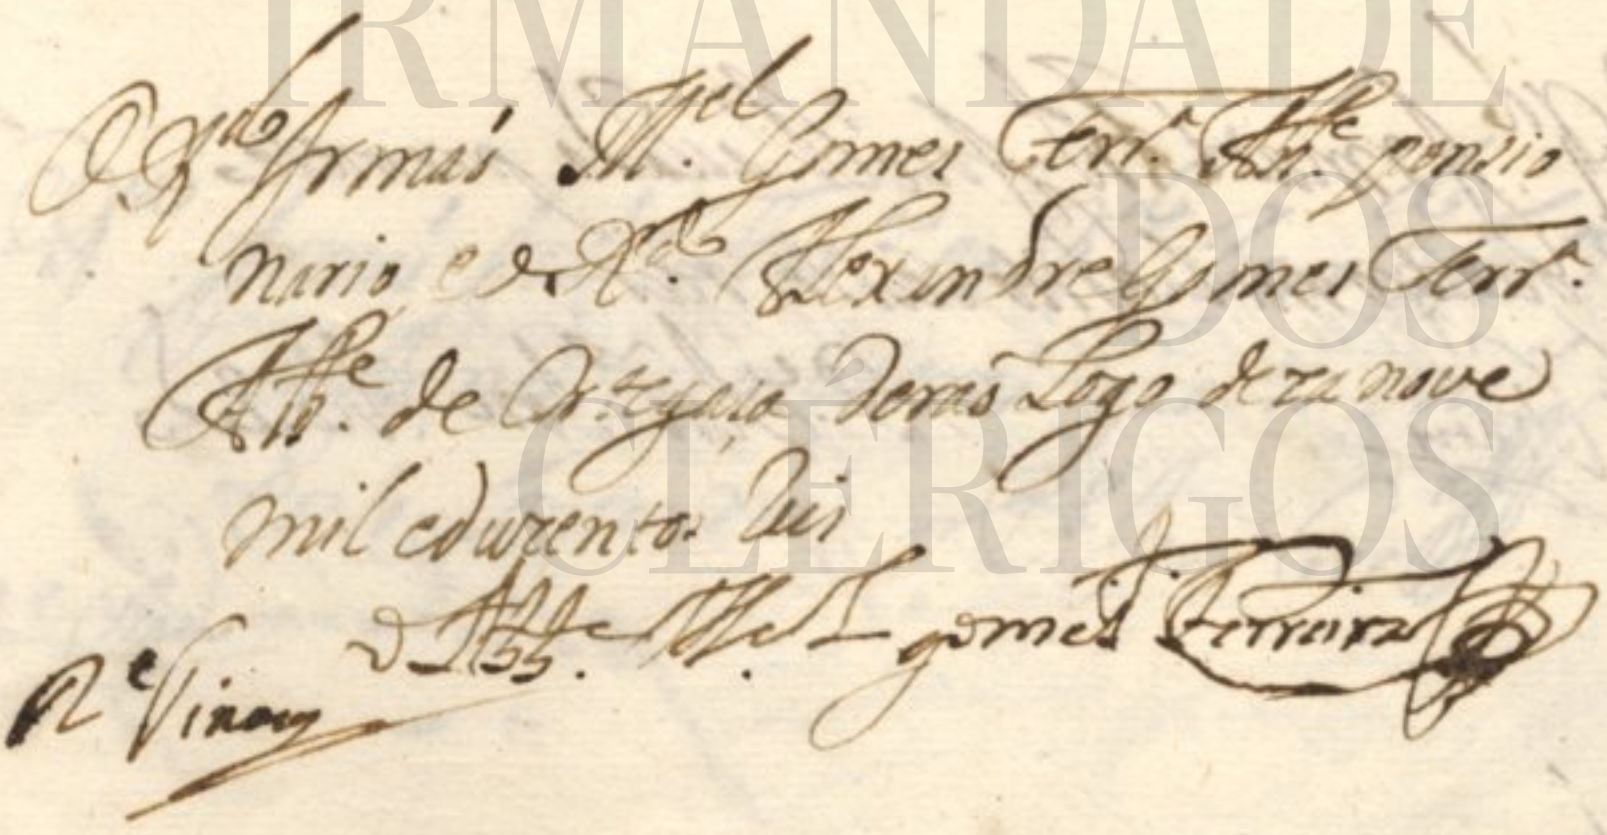 IRMANDADE DOS CLÉRIGOS
O R.do Irmaõ M.el Gomes Ferr.a Abb.e pensio
nario, e o R.do Alexandre Gomes Ferr.a
Abb.e de deraõ Logo dezanove
mil eduzentos Reis
O Abb.e M.el gomes Ferreira